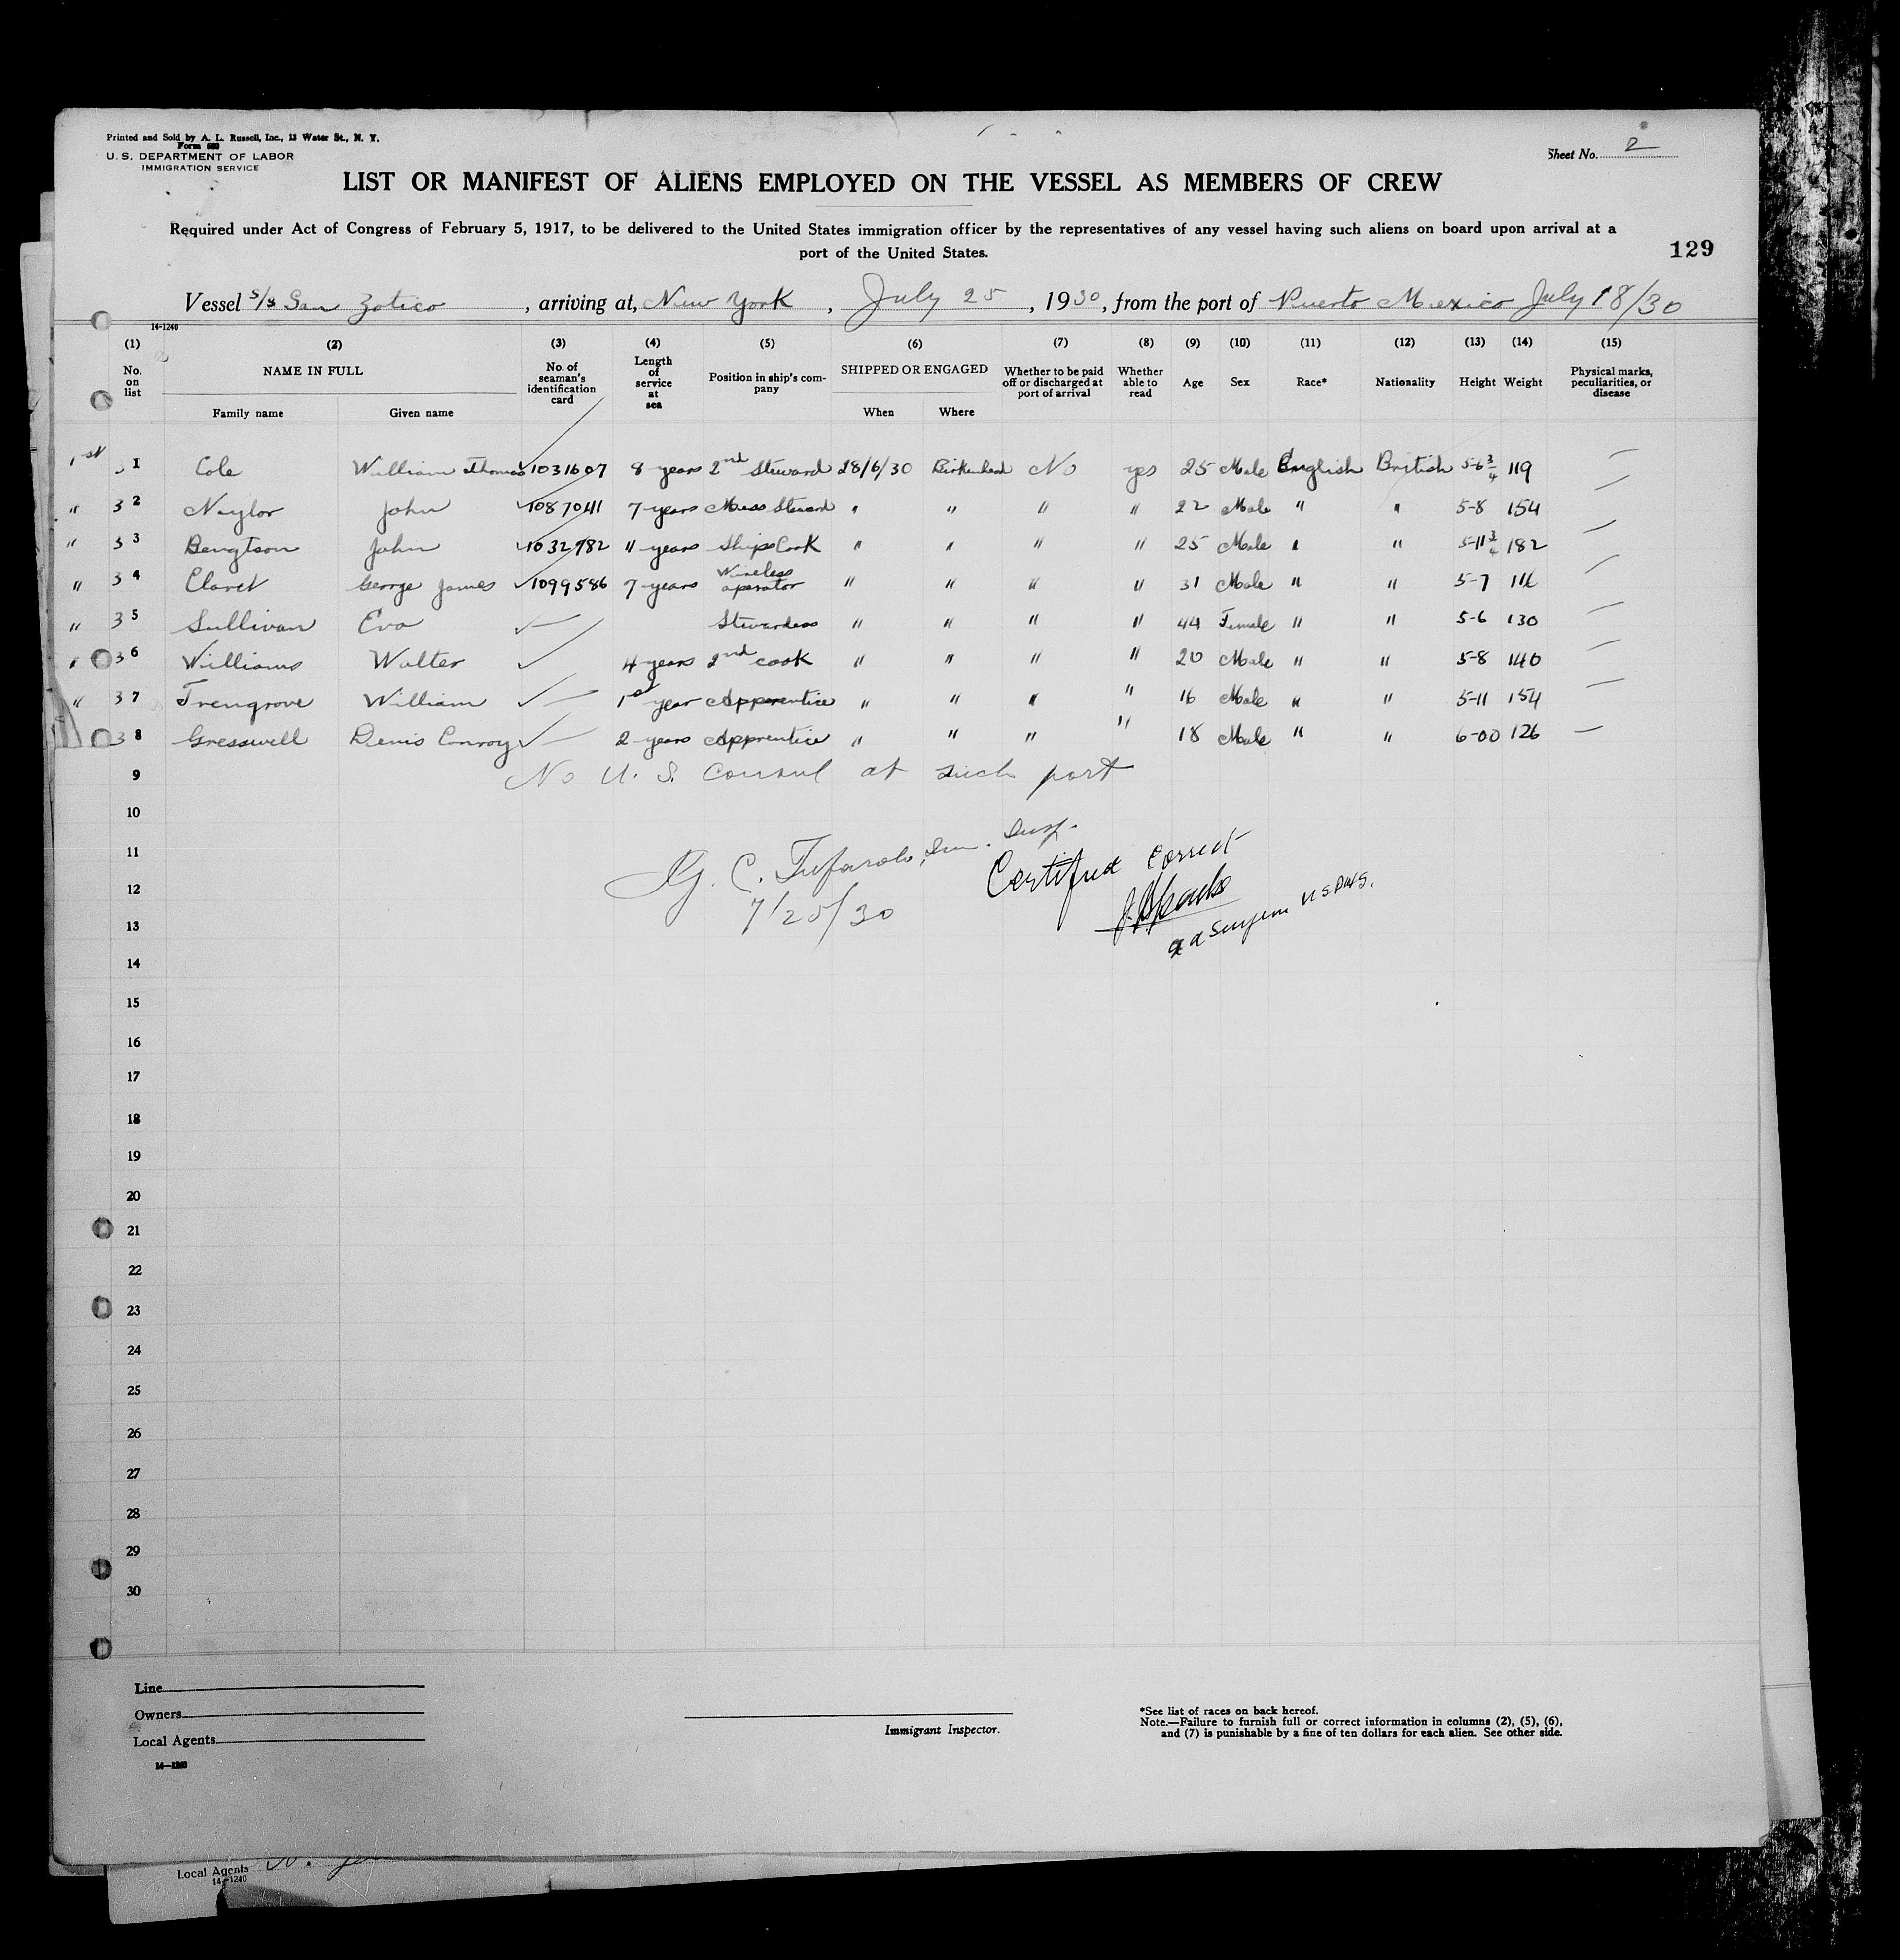 Printed and Sold by A. L. Russell, Inc., 13 Water St., N. Y.
Form 680
U. S. DEPARTMENT OF LABOR
IMMIGRATION SERVICE
Sheet No. 2
LIST OR MANIFEST OF ALIENS EMPLOYED ON THE VESSEL AS MEMBERS OF CREW
Required under Act of Congress of February 5, 1917, to be delivered to the United States immigration officer by the representatives of any vessel having such aliens on board upon arrival at a
port of the United States.
129
Vessel S/S San Zotico, arriving at, New York, July 25, 1930, from the port of Puerto Mexico July 18/30
14-1240
(1) (2) (3) (4) (5) (6) (7) (8) (9) (10) (11) (12) (13) (14) (15)
No. on list NAME IN FULL No. of seaman's identification card Length of service at sea Position in ship's company SHIPPED OR ENGAGED Whether to be paid off or discharged at port of arrival Whether able to read Age Sex Race* Nationality Height Weight Physical marks, peculiarities, or disease
Family name Given name When Where
1st 31 Cole William Thomas 1031607 8 years 2nd Steward 28/6/30 Birkenhead No yes 25 Male English British 5-6 3/4 119 —
" 32 Naylor John 1087041 7 years Mess Steward " " " " 22 Male " " 5-8 154 —
" 33 Bengtson John 1032782 11 years Ships Cook " " " " 25 Male " " 5-11 3/4 182 —
" 34 Claret George James 1099586 7 years Wireless operator " " " " 31 Male " " 5-7 —
" 35 Sullivan Eva Stewardess " " " " 44 Female " " 5-6 130 —
" 36 Williams Walter 4 years 2nd cook " " " " 20 Male " " 5-8 140 —
" 37 Trengrove William 1st year Apprentice " " " " 16 Male " " 5-11 154 —
38 Gresswell Denis Conroy 2 years Apprentice " " " " 18 Male " " 6-00 126 —
9 No U. S. Consul at such port
10
11
12
13
G. C. Tufarolo, Im. Insp.
7/25/30
Certified Correct
a a Surgeon U S P H S.
14
15
16
17
18
19
20
21
22
23
24
25
26
27
28
29
30
Line
Owners
Local Agents
14—1240
Immigrant Inspector.
*See list of races on back hereof.
Note.—Failure to furnish full or correct information in columns (2), (5), (6),
and (7) is punishable by a fine of ten dollars for each alien. See other side.
Local Agents
14-1240